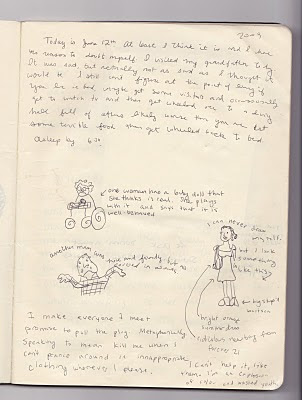 2009
Today is June 12th At least I think it is and I have
no reason to doubt myself. I visited my grandfather today
It was sad, but actually not as sad as I thought it
would be I still can't figure out the point of living if
you lie in bed maybe get some visitors and occasionally
get to watch tv and then get wheeled out to a dining
hall full of others likely worse than you are eat
some terrible food then get wheeled back to bed.
Asleep by 6:30
one woman has a baby doll that
she thinks is real. She plays
with it and says that it is
well-behaved
I can never draw
myself.
but I look
something
like this
another man was
tied and
big stupid
bright orange
summer dress
ridiculous new thing from
forever 21
I make everyone I meet
promise to pull the plug. Metaphorically
speaking to mean kill me when I
can't prance around in inappropriate
clothing wherever I please.
I can't help it, I like
them. I'm an explosion
of color and missed youth